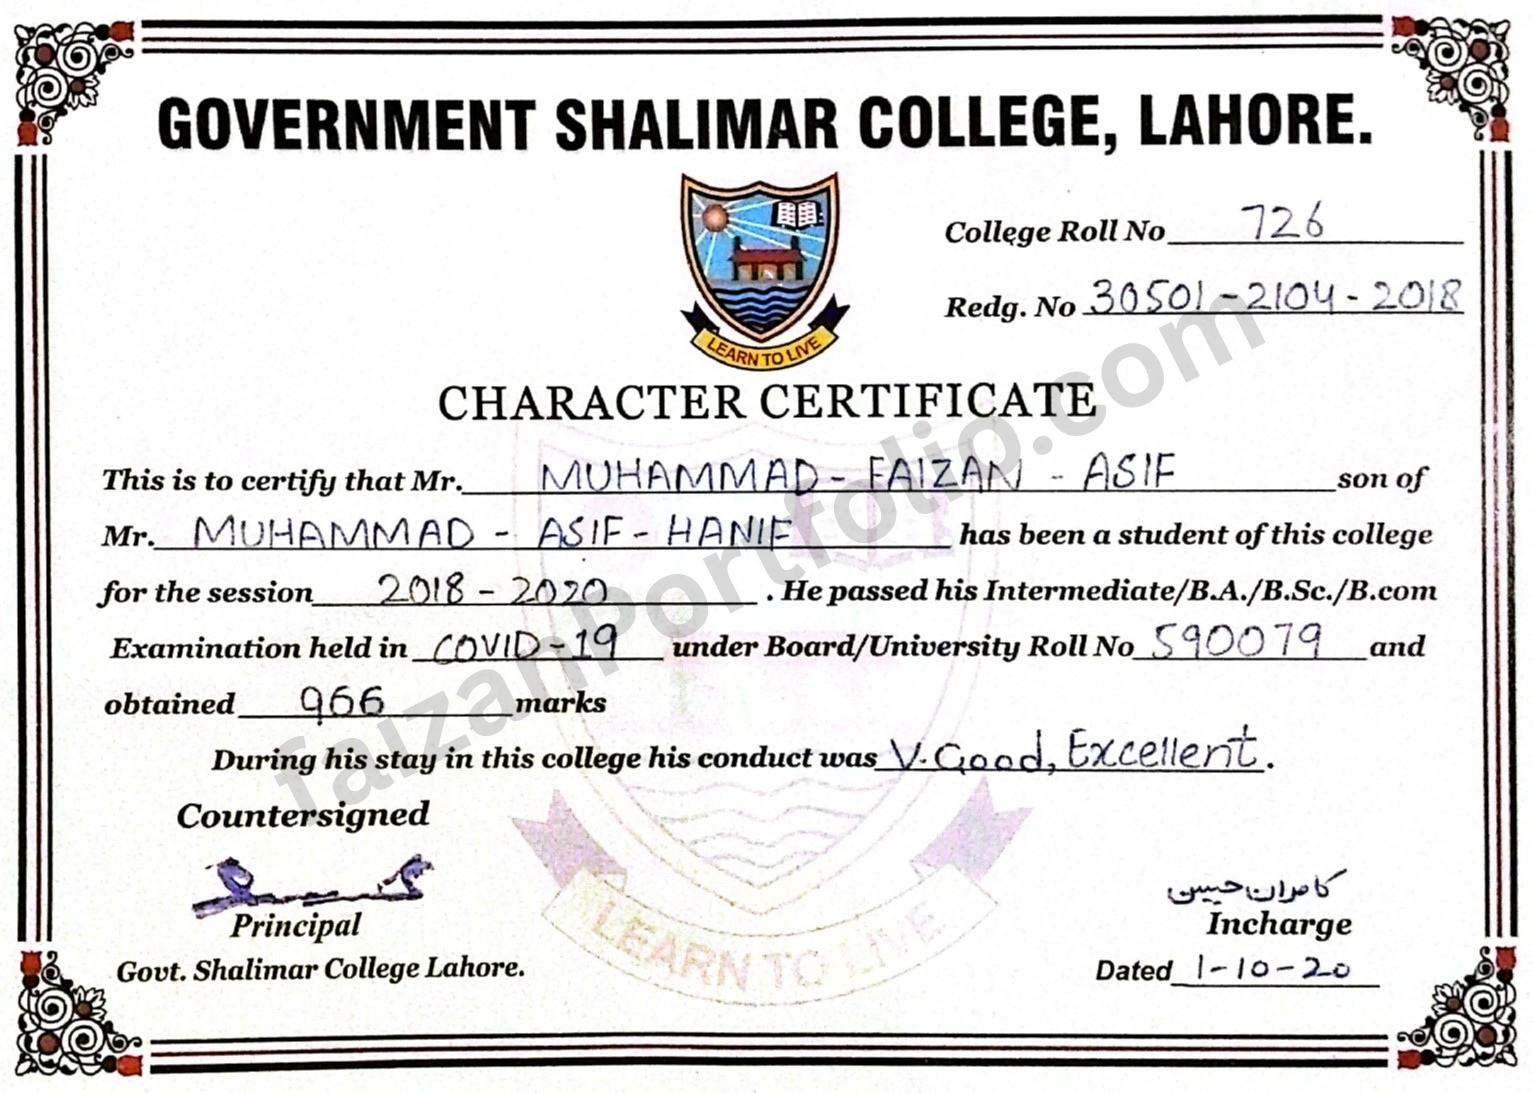 GOVERNMENT SHALIMAR COLLEGE, LAHORE.
LEARN TO LIVE
College Roll No 726
Redg. No 30501-2104-2018
CHARACTER CERTIFICATE
This is to certify that Mr. MUHAMMAD - FAIZAN - ASIF son of
Mr. MUHAMMAD - ASIF - HANIF has been a student of this college
for the session 2018 - 2020 . He passed his Intermediate/B.A./B.Sc./B.com
Examination held in COVID-19 under Board/University Roll No 590079 and
obtained 966 marks
During his stay in this college his conduct was V. Good, Excellent.
faizanPortfolio.com
Countersigned
Principal
Govt. Shalimar College Lahore.
LEARN TO LIVE
کامران حسین
Incharge
Dated 1-10-20